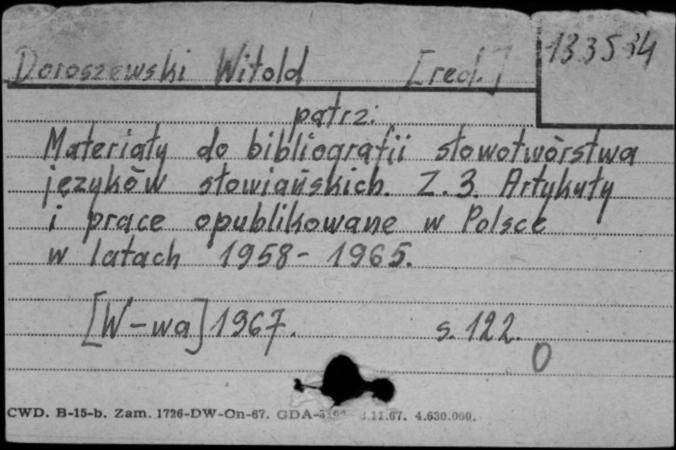 133534
Doroszewski Witold [red.]
patrz:
Materiały do bibliografii słowotwórstwa
języków słowiańskich. Z. 3. Artykuły
i prace opublikowane w Polsce
w latach 1958-1965.
[W-wa] 1967. s. 122.
0
CWD. B-15-b. Zam. 1726-DW-On-67. GDA- .11.67. 4.630.000.